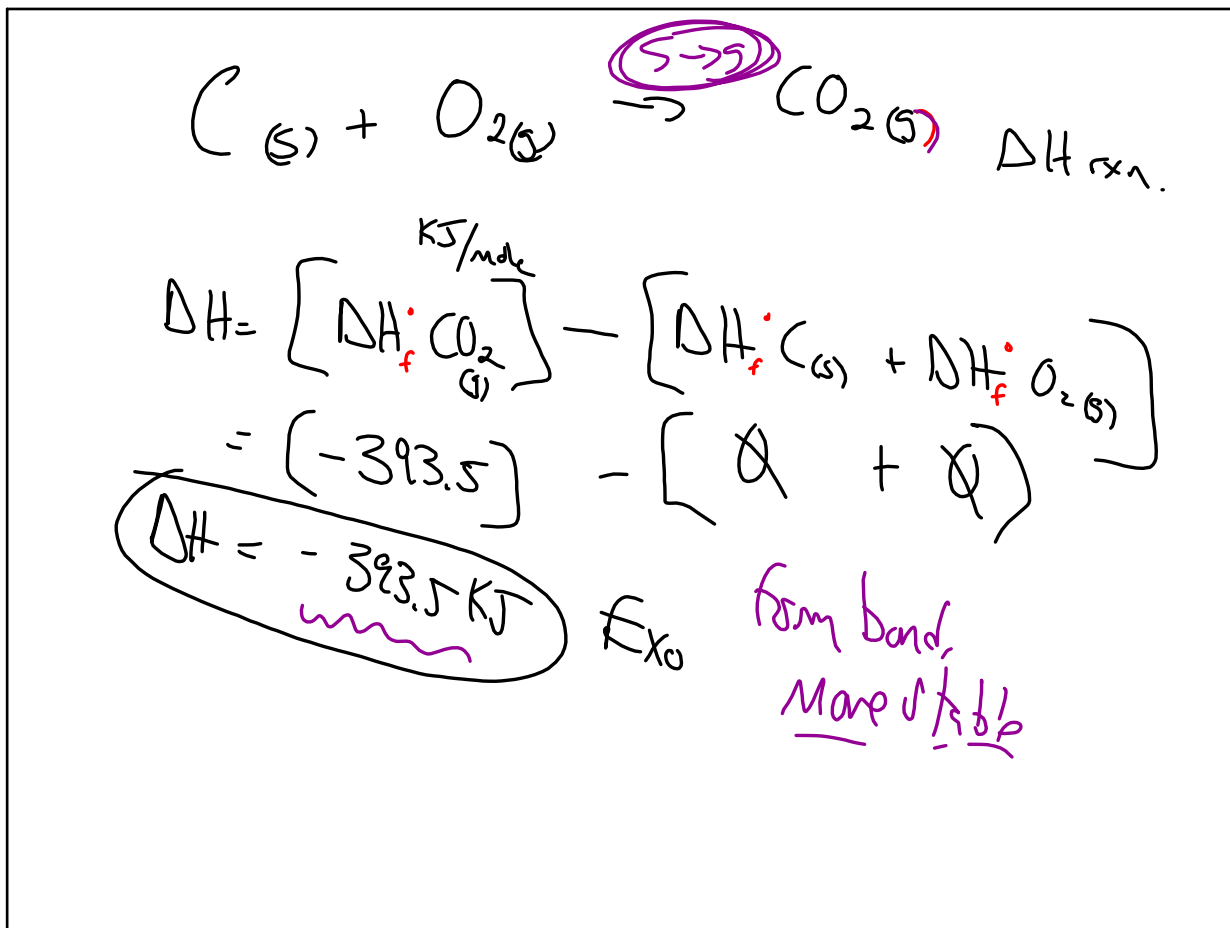 S → g
C (s) + O₂(g) → CO₂(g) ΔH rxn.
KJ/mole
ΔH = [ΔH°f CO₂(g)] − [ΔH°f C(s) + ΔH°f O₂(g)]
= [-393.5] - [0 + 0]
ΔH = - 393.5 KJ Exo
form bond,
More stable